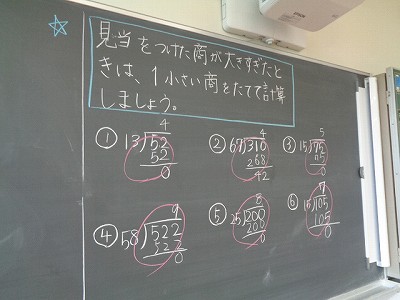 見当をつけた商が大きすぎたと
きは、1小さい商をたてて計算
しましょう。
① 4
13)52
52
0
② 4
67)310
268
42
③ 5
15)75
75
0
④ 9
58)522
522
0
⑤ 8
25)200
200
0
⑥ 7
15)105
105
0